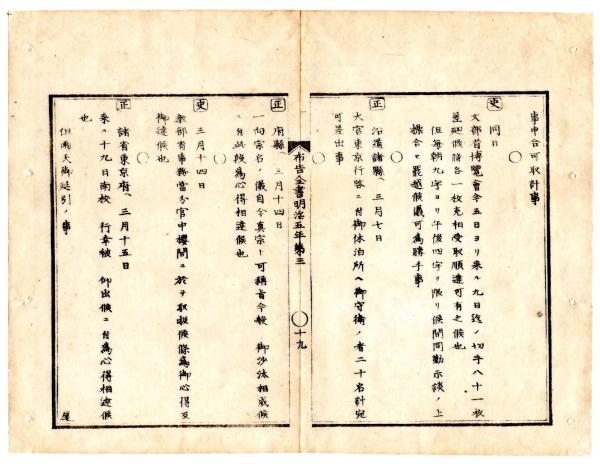 事申合可取計事
〇
史
同日
文部省博覧會今五日ヨリ来ル九日迄ノ切手八十一枚
差廻候條各一枚充相受取順達可有之候也
但毎朝九字ヨリ午後四字ヲ限リ候間同勤示談ノ上
操合セ罷越候儀可為勝手事
〇
正
沿道諸縣ヘ 三月七日
大宮東京行啓ニ付御休泊所ヘ御守衛ノ者二十名計宛
可差出事
〇
布告全書明治五年第三
〇十九
正
府縣ヘ 三月十四日
一向宗名ノ儀自今真宗ト可稱旨今般 御沙汰相成候
ニ付此段為心得相達候也
〇
史
三月十四日
教部省事務當分官中樓間ニ於テ取扱候條為御心得及
御達候也
〇
正
諸省東京府ヘ 三月十五日
来ル十九日南校 行幸被 仰出候ニ付為心得相達候
也
但雨天御延引ノ事